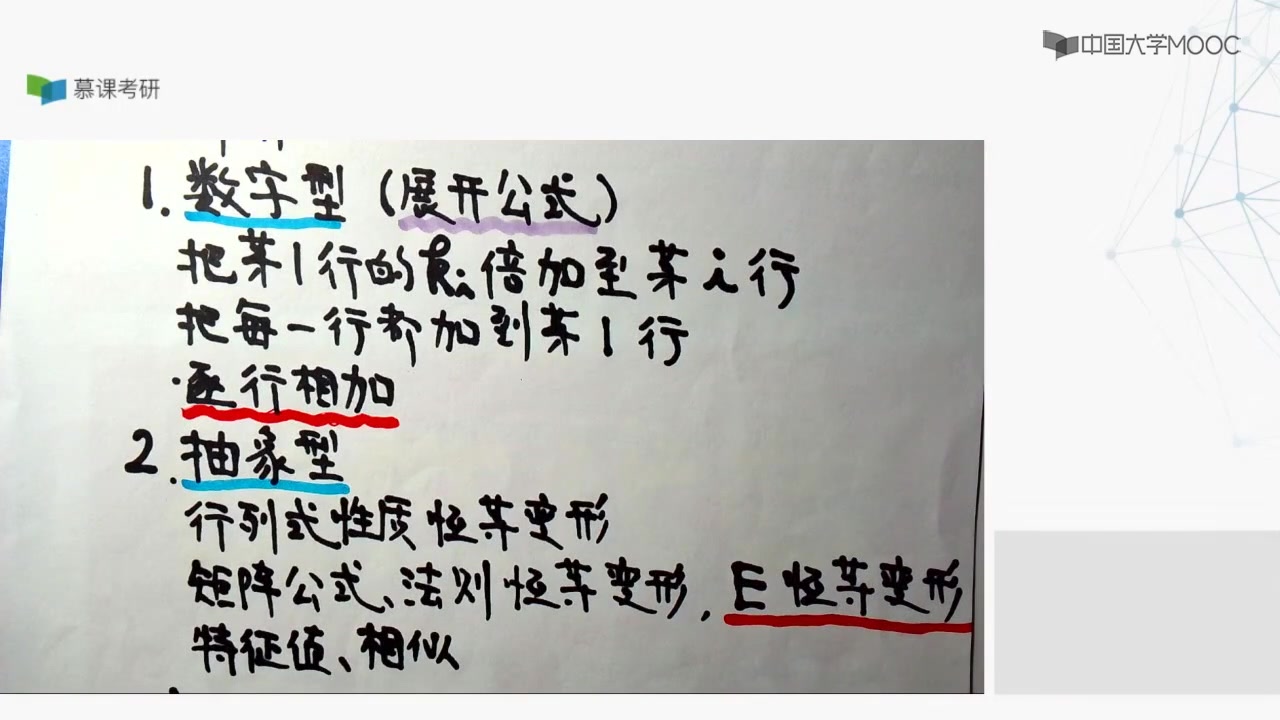 中国大学MOOC
慕课考研
1. 数字型 (展开公式)
把某1行的kᵢ倍加至某i行
把每一行都加到某1行
·逐行相加
2. 抽象型
行列式性质恒等变形
矩阵公式、法则恒等变形, E恒等变形
特征值、相似